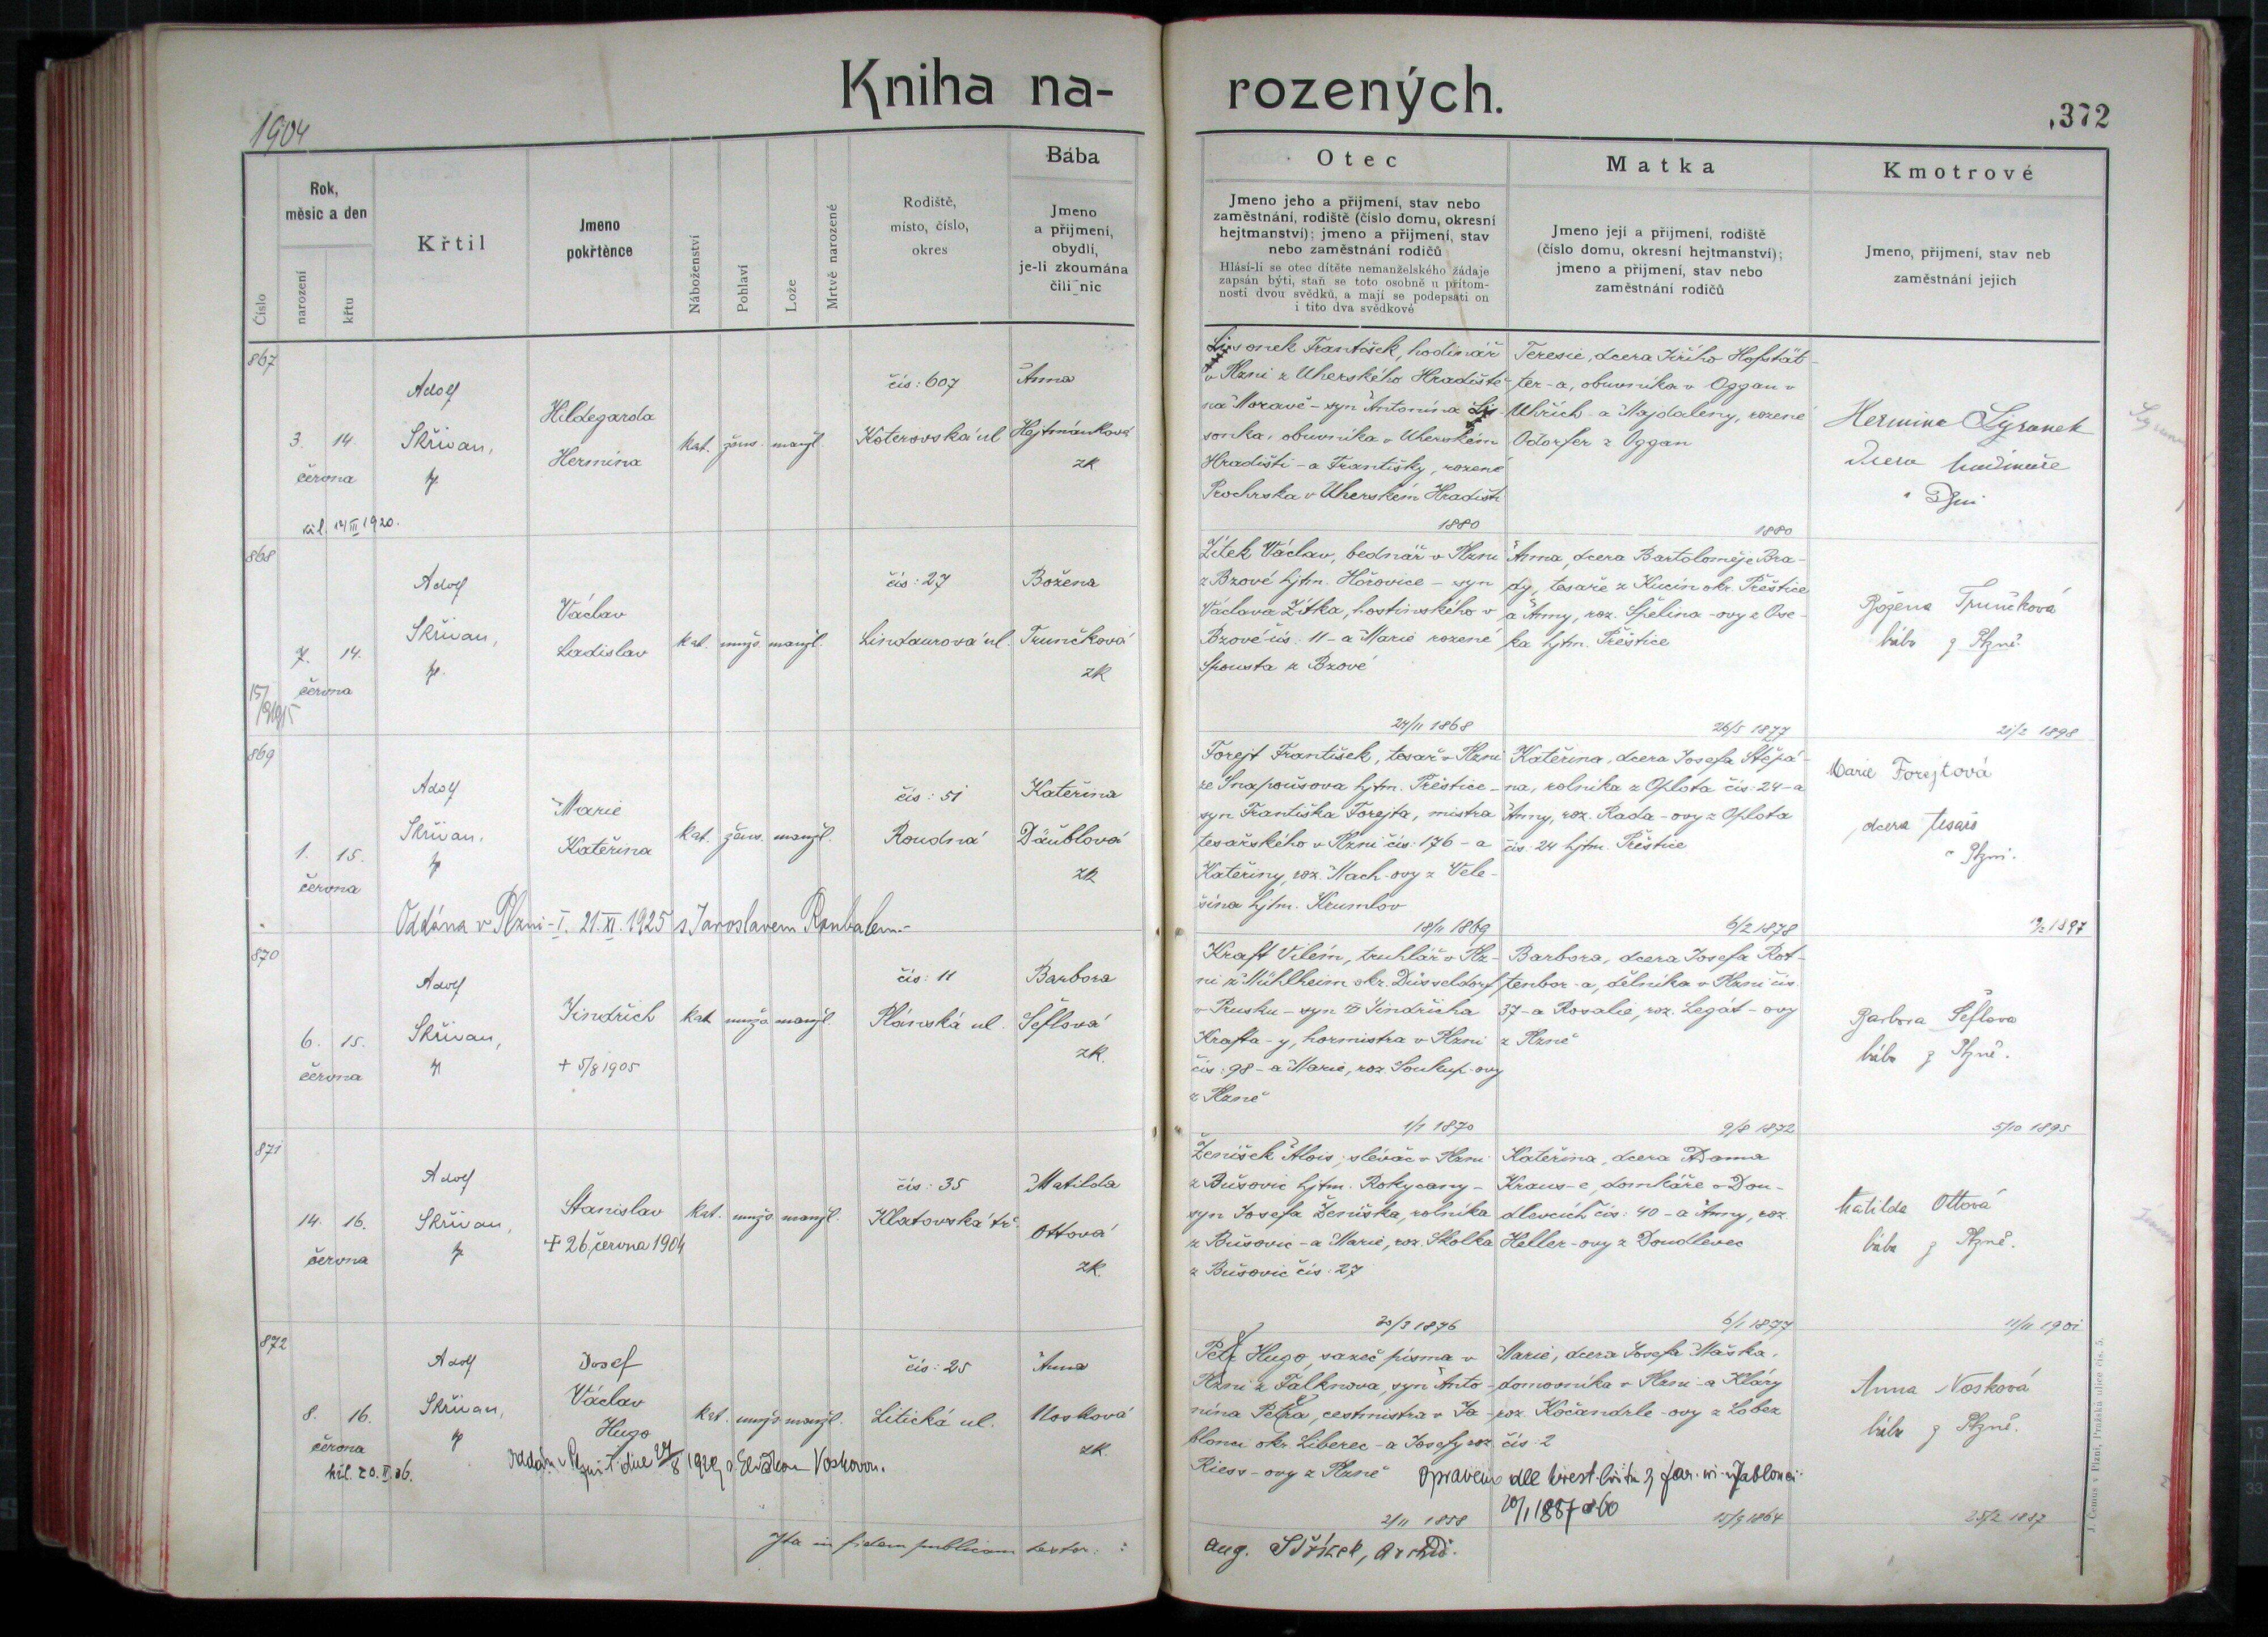 Kniha na-
rozených.
1904
372
Číslo
Rok,
měsíc a den
narození
křtu
Křtil
Jmeno
pokřtěnce
Náboženství
Pohlaví
Lože
Mrtvě narozené
Rodiště,
místo, číslo,
okres
Bába
Jmeno
a přijmení,
obydlí,
je-li zkoumána
čili nic
Otec
Jmeno jeho a přijmení, stav nebo
zaměstnání, rodiště (číslo domu, okresní
hejtmanství); jmeno a přijmení, stav
nebo zaměstnání rodičů
Hlásí-li se otec dítěte nemanželského žádaje
zapsán býti, staň se toto osobně u přítom-
nosti dvou svědků, a mají se podepsati on
i tito dva svědkové
Matka
Jmeno její a přijmení, rodiště
(číslo domu, okresní hejtmanství);
jmeno a přijmení, stav nebo
zaměstnání rodičů
Kmotrové
Jmeno, přijmení, stav neb
zaměstnání jejich
867
3. 14.
června
Adolf
Skřivan,
Hildegarda
Hermina
kat. žens. manžl.
čís: 607
Koterovská ul
Anna
Hejtmánková
zk
František, hodinář
v Plzni z Uherského Hradiště
na Moravě - syn Antonína
sonka, obuvníka v Uherském
Hradišti - a Františky, rozené
v Uherském Hradišti
1880
Teresie, dcera Jiřího Hofstät-
ter-a, obuvníka v Oggan v
Uhřích - a Majdaleny, rozené
Odorfer z Oggan
1880
Hermina
dcera hodináře
868
7. 14.
června
Adolf
Skřivan,
Václav
Ladislav
kat. mužs. manžl.
čís: 27
Lindaurova ul.
Božena
Trunčková
zk
Žítek Václav, bednář v Plzni
z Bzové hjtm. Hořovice - syn
Václava Žítka, hostinského v
Bzové čís. 11 - a Marie rozené
Spousta z Bzové
24/11 1868
Anna, dcera Bartoloměje Bra-
dy, tesaře z Kucín okr. Přeštice
a Anny, roz. Špelina-ovy z Ose-
ka hjtm. Přeštice
26/5 1877
Božena Trunčková
bába z Plzně.
21/2 1898
869
1. 15.
června
Adolf
Skřivan,
Marie
Kateřina
kat. žens. manžl.
čís: 51
Roudná
Kateřina
Däublová
zk
Oddána v Plzni-I. 21.XI.1925 s Jaroslavem
Forejt František, tesař v Plzni
ze Snapoušova hjtm. Přeštice -
syn Františka Forejta, mistra
tesařského v Plzni čís: 176 - a
Kateřiny, roz. Mach-ovy z Vele-
šína hjtm. Krumlov
18/11 1869
Kateřina, dcera Josefa Štěpá-
na, rolníka z Oplota čís: 24 - a
Anny, roz. Rada-ovy z Oplota
čís: 24 hjtm. Přeštice
6/2 1878
Marie Forejtová
dcera tesaře
v Plzni.
1897
870
6. 15.
června
Adolf
Skřivan,
Jindřich
+ 5/8 1905
kat mužs manžl.
čís: 11
Plánská ul.
Barbora
Šeflová
zk.
Kraft Vilém, truhlář v Plz-
ni z Mühlheim okr. Düsseldorf
v Prusku - syn Jindřicha
Krafta-y, hormistra v Plzni
čís: 98 - a Marie, roz. Soukup-ovy
z Plzně
1/1 1870
Barbora, dcera Josefa Rot-
tenbor-a, dělníka v Plzni čís.
37 - a Rosalie, roz. Legát-ovy
z Plzně
9/8 1872
Barbora Šeflova
bába z Plzně.
5/10 1895
871
14. 16.
června
Adolf
Skřivan,
Stanislav
+ 26 června 1904
kat. mužs. manžl.
čís: 35
Klatovská tř.
Matilda
Ottová
zk.
Ženíšek Alois, slévač v Plzni
z Bušovic hjtm. Rokycany -
syn Josefa Ženíška, rolníka
z Bušovic - a Marie, roz. Skolka
z Bušovic čís: 27
20/3 1876
Kateřina, dcera Adama
Kraus-e, domkáře v Dou-
dlevcích čís: 40 - a Anny, roz.
Heller-ovy z Doudlevec
6/1 1877
Matilda Ottová
bába z Plzně.
11/11 1901
872
8. 16.
června
Adolf
Skřivan,
Josef
Václav
Hugo
kat. mužs manžl.
čís: 25
Litická ul.
Anna
Nosková
zk.
Hugo, sazeč písma v
Plzni z Falknova, syn Anto-
nína Petra, cestmistra v Ja-
blonci okr. Liberec - a Josefy roz
Riess-ovy z Plzně
2/11 1858
Marie, dcera Josefa Maška,
domovníka v Plzni - a Kláry
roz. Kočandrle-ovy z Lobez
čís: 2
15/9 1864
Anna Nosková
bába z Plzně.
25/2 1887
Ita in fidem publicam testor:
J. Čemus v Plzni, Pražská ulice čís. 5.